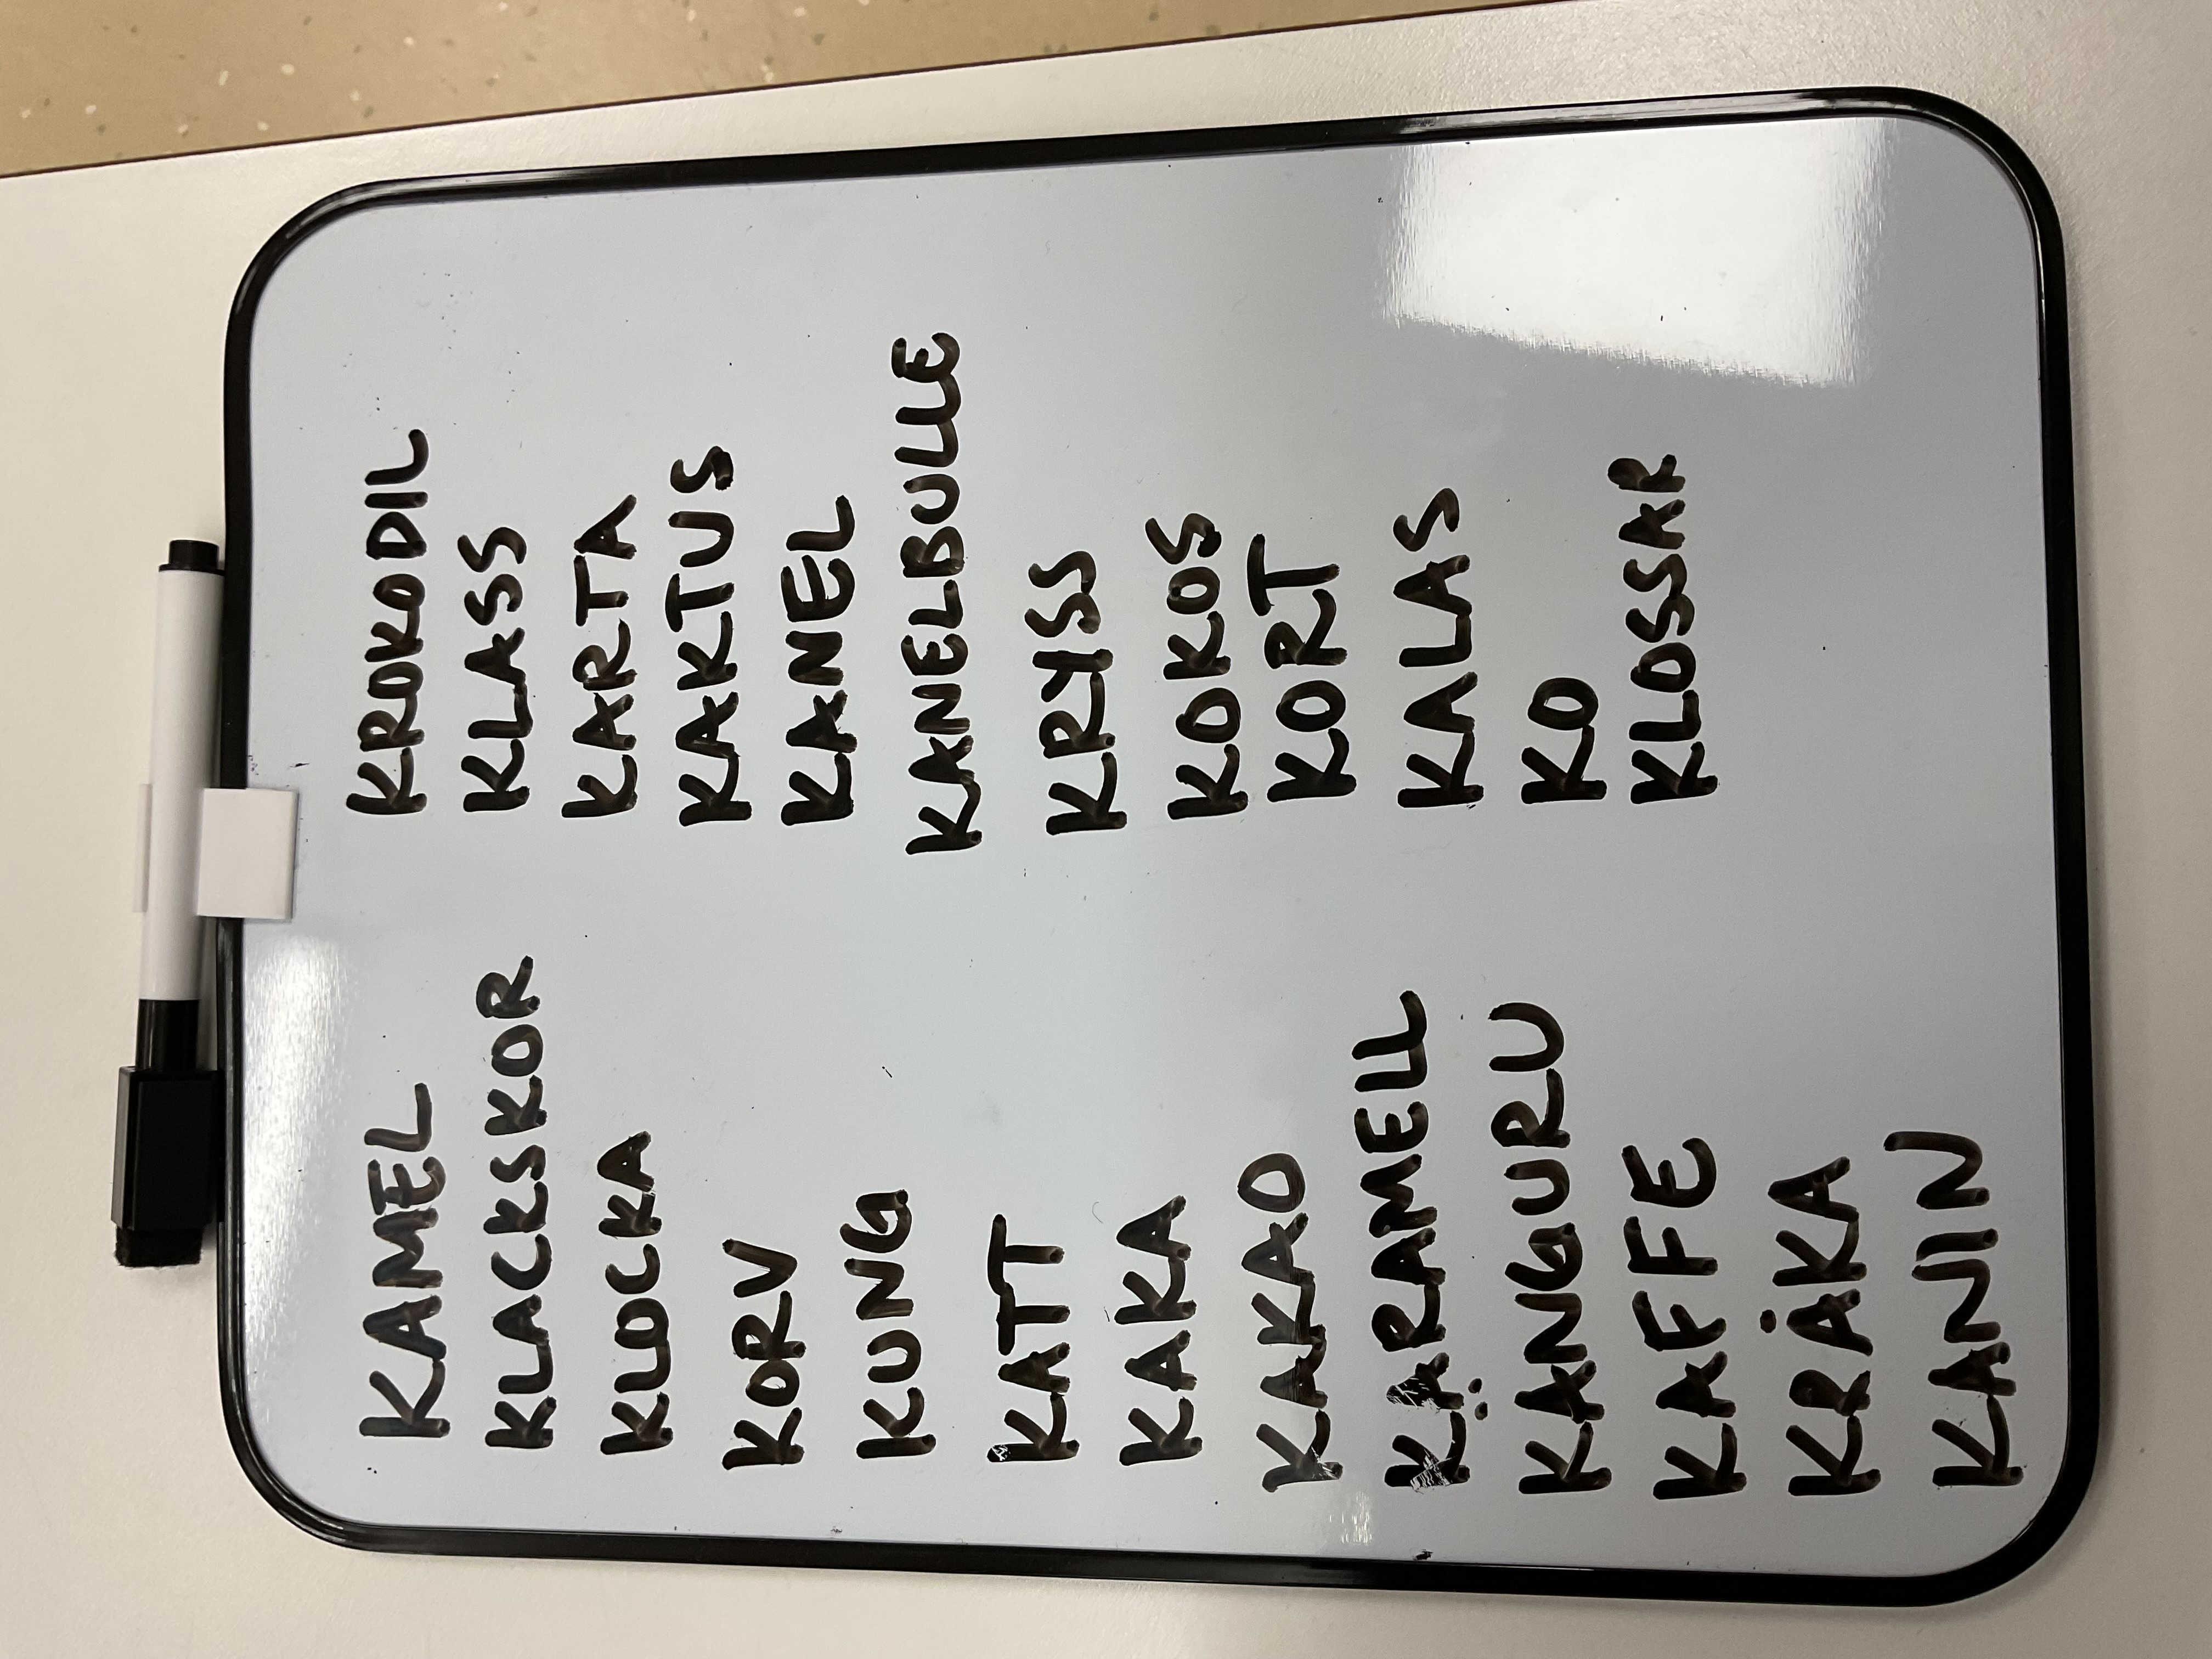 KAMEL
KLACKSKOR
KLOCKA
KORV
KUNG
KATT
KAKA
KAKAO
KARAMELL
KÄNGURU
KAFFE
KRÅKA
KANIN
KROKODIL
KLASS
KARTA
KAKTUS
KANEL
KANELBULLE
KRYSS
KOKOS
KORT
KALAS
KO
KLOSSAR